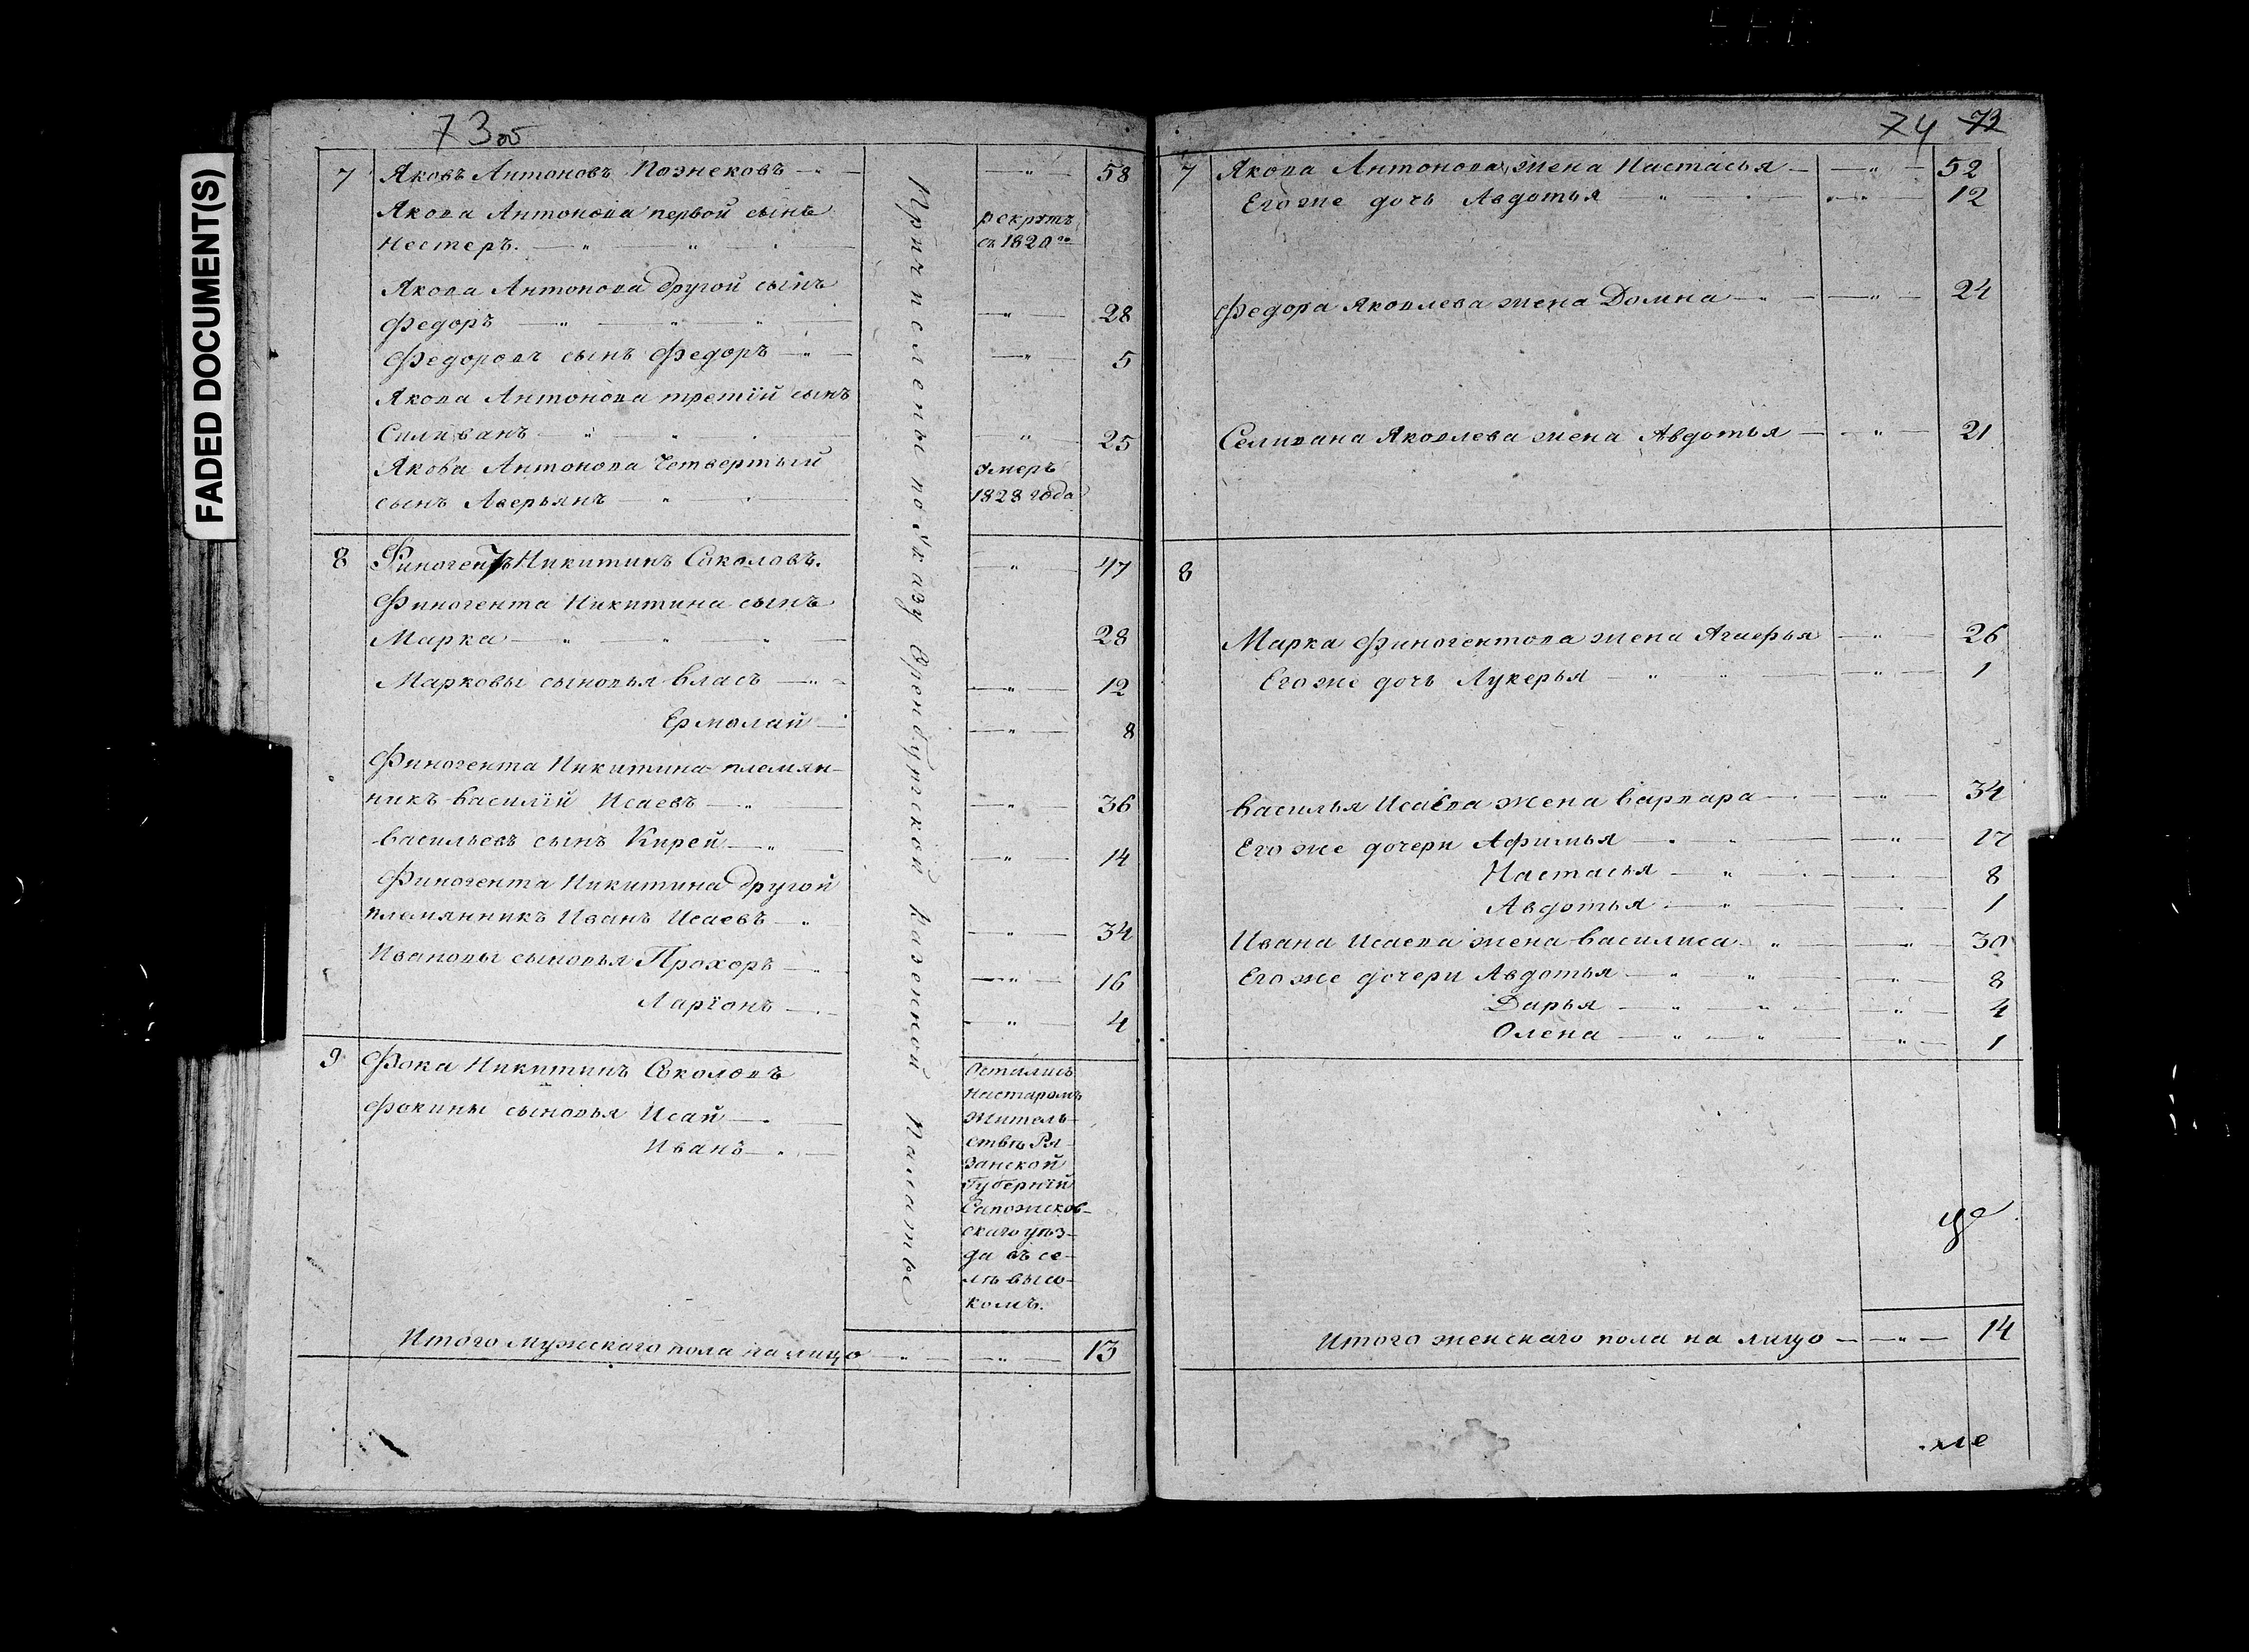 FADED DOCUMENT(S)
73об
7 Яковъ Антоновъ Познековъ 58
Якова Антонова первой сынъ рекрутъ
Нестеръ. съ 1820го
Якова Антонова другой сынъ
Федоръ 28
Федоровъ сынъ Федоръ 5
Якова Антонова третiй сынъ
Силиванъ 25
Якова Антонова Четвертый умеръ
сынъ Аверьянъ 1828 года
8 Финогентъ Никитинъ Соколовъ. 47
Финогента Никитина сынъ
Марка 28
Марковы сыновья Власъ 12
Ермолай 8
Финогента Никитина племян-
никъ Василiй Исаевъ 36
Васильевъ сынъ Кирей 14
Финогента Никитина другой
племянникъ Иванъ Исаевъ 34
Ивановы сыновья Прохоръ 16
Ларiонъ 4
9 Фока Никитинъ Соколовъ
Фокины сыновья Исай
Иванъ
Остались
на старомъ
Житель-
ствѣ Ря-
занской
Губернiй
Сапожков-
скаго уѣз-
да въ се-
лѣ Высо-
комъ.
Причислены по Указу Оренбургской Казенной Палаты
Итого Мужскаго пола на лицо 13
74 73
7 Якова Антонова жена Настасья 52
Его же дочь Авдотья 12
Федора Яковлева жена Домна 24
Селивана Яковлева жена Авдотья 21
8
Марка Финогентова жена Агафья 26
Его же дочь Лукерья 1
Василья Исаева жена Варвара 34
Его же дочери Афимья 17
Настасья 8
Авдотья 1
Ивана Исаева жена Василиса 30
Его же дочери Авдотья 8
Дарья 4
Олена 1
Итого женскаго пола на лицо 14